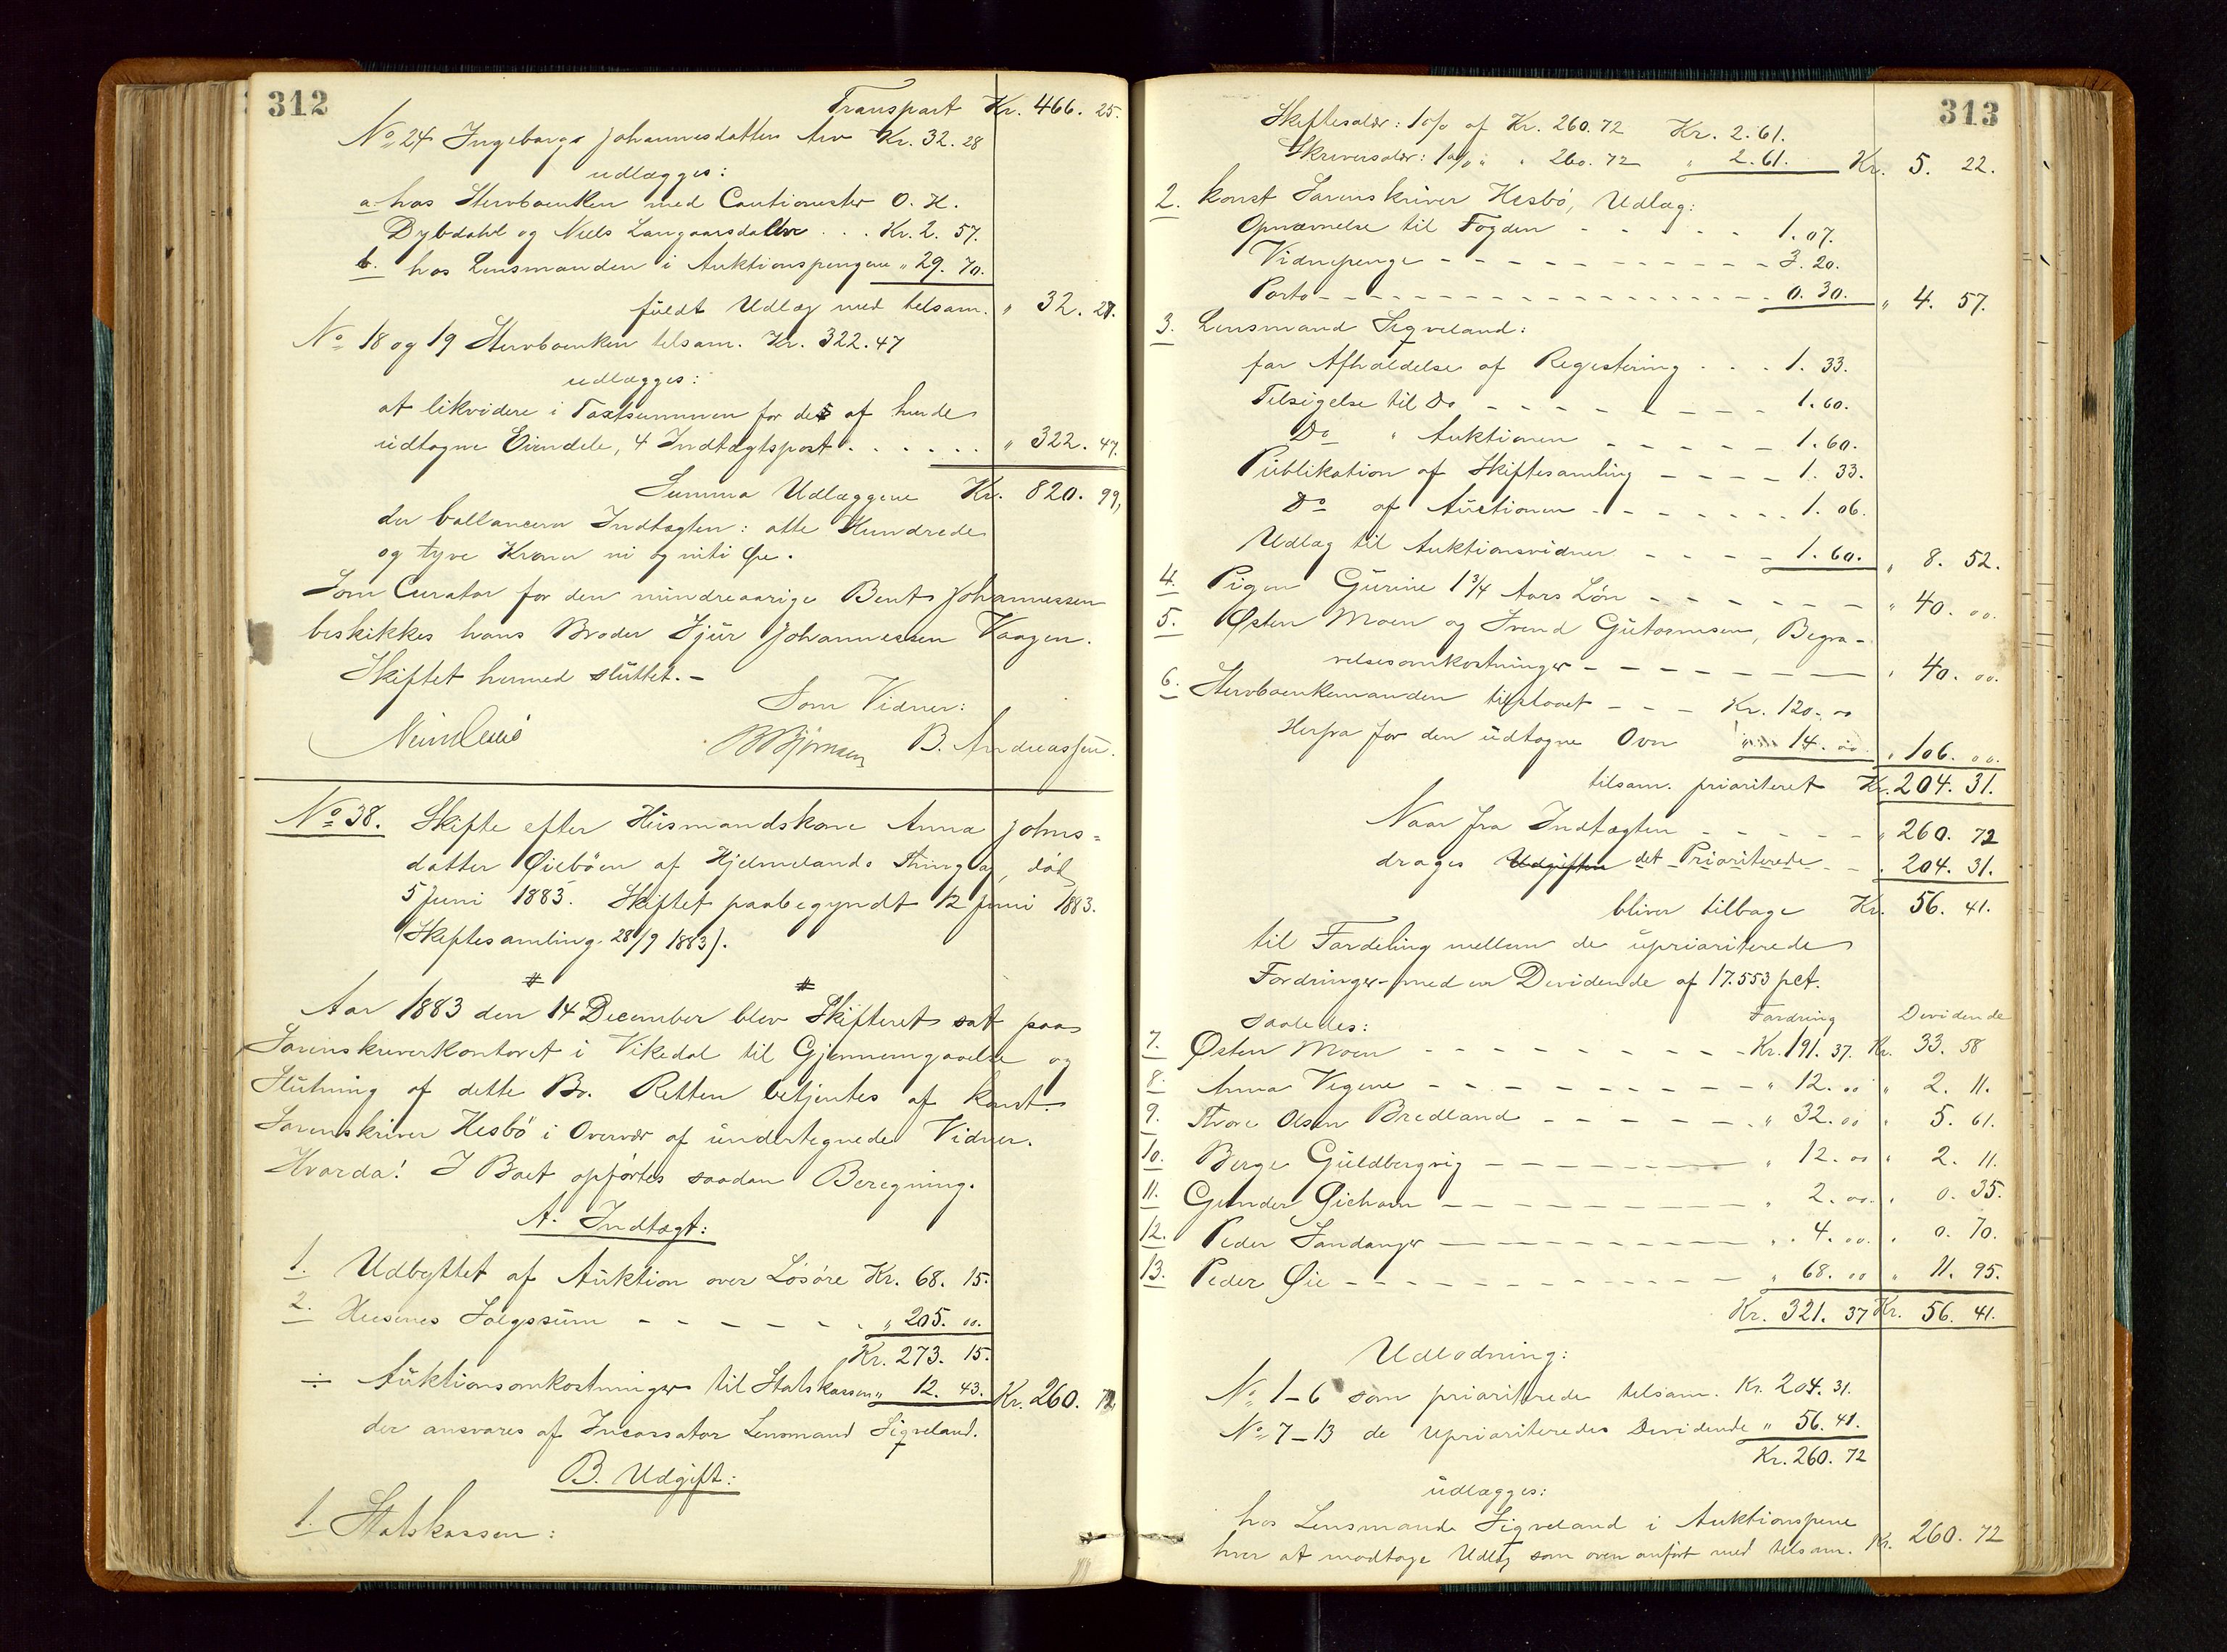 312
Transport Kr. 466. 25.
No 24 Ingeborg Johannesdatters Arv Kr. 32. 28
udlægges:
a. hos Stervboenken med Cautionister O. H.
Dybdahl og Niels Langaarsdalen . . . Kr. 2. 57.
b. hos Lensmanden i Auktionspengene " 29. 70.
fuldt Udlæg med tilsam. " 32. 27.
No 18 og 19 Stervboenken tilsam. Kr. 322. 47
udlægges:
at likvidere i Taxtsummen for de af hende
udtagne Eiendele, 4 Indtægtspost . . . . . . " 322. 47.
Summa Udlæggene Kr. 820. 99,
der ballancerer Indtægten: otte Hundrede
og tyve Kroner ni og niti Øre.
Som Curator for den mindreaarige Bent Johannessen
beskikkes hans Broder Sjur Johannessen Vaagen.
Skiftet hermed sluttet. –
Som Vidner:
B. Bjørnsen B. Andreassen.
No 38. Skifte efter Husmandskone Anna Johns-
datter Øiebøen af Hjelmelands Thinglag, død
5 Juni 1883. Skiftet paabegyndt 12 Juni 1883.
(Skiftesamling 28/9 1883).
# #
Aar 1883 den 14 December blev Skifteret sat paa
Sorenskriverkontoret i Vikedal til Gjennemgaaelse og
Slutning af dette Bo. Retten betjentes af konst.
Sorenskriver Hesbø i Overvær af undertegnede Vidner.
Hvorda! I Boet opførtes saadan Beregning.
A. Indtægt:
1. Udbyttet af Auktion over Løsøre Kr. 68. 15.
2. Husenes Salgssum – – – – – – " 205. 00.
Kr. 273. 15.
÷ Auktionsomkostninger til Statskassen " 12. 43. Kr. 260. 72
der ansvares af Incassator Lensmand Sigveland.
B. Udgift:
1. Statskassen:
313
Skiftesalær: 1 o/o af Kr. 260. 72 Kr. 2. 61.
Skriversalær: 1 o/o " " 260. 72 " 2. 61. Kr. 5. 22.
2. konst Sorenskriver Hesbø, Udlæg:
Opnævnelse til Fogden – – – – – 1. 07.
Vidnepenge – – – – – – – – – 3. 20.
Porto – – – – – – – – – – – 0. 30. " 4. 57.
3. Lensmand Sigveland:
for Afholdelse af Registering . . . 1. 33.
Tilsigelse til Do – – – – – – – 1. 60.
Do " Auktionen – – – – – 1. 60.
Publikation af Skiftesamling – – – – 1. 33.
Do af Auctionen – – – – – – – 1. 06.
Udlæg til Auktionsvidner – – – – 1. 60. " 8. 52.
4. Pigen Gurine 1 3/4 Aars Løn – – – – – – " 40. 00.
5. Østen Moen og Svend Guttormsen, Begra-
velsesomkostninger – – – – – – – – " 40. 00.
6. Stervboenkemanden tilstaaet – – – Kr. 120. 00
Herfra for den udtagne Ovn " 14. 00. " 106. 00.
tilsam. prioriteret Kr. 204. 31.
Naar fra Indtægten – – – – – " 260. 72
drages Udgiften det Prioriterede – – " 204. 31.
bliver tilbage Kr. 56. 41.
til Fordeling mellem de uprioriterede
Fordringer med en Devidende af 17.553 pct.
saaledes: Fordring Devidende
7. Østen Moen – – – – – – – – – Kr. 191. 37. Kr. 33. 58
8. Anna Vigene – – – – – – – – – " 12. 00 " 2. 11.
9. Thore Olsen Bredland – – – – – – " 32. 00 " 5. 61.
10. Berge Guldbergvig – – – – – – – " 12. 00 " 2. 11.
11. Gunder Øiehavn – – – – – – – – " 2. 00. " 0. 35.
12. Peder Sandanger – – – – – – – – " 4. 00. " 0. 70.
13. Peder Øie – – – – – – – – – – " 68. 00 " 11. 95.
Kr. 321. 37 Kr. 56. 41.
Udlodning:
No 1–6 som prioriterede tilsam. Kr. 204. 31.
No 7–13 de uprioriteredes Devidende " 56. 41.
Kr. 260. 72
udlægges:
hos Lensmand Sigveland i Auktionspene
hver at modtage Udlæg som oven anført med tilsam. Kr. 260. 72